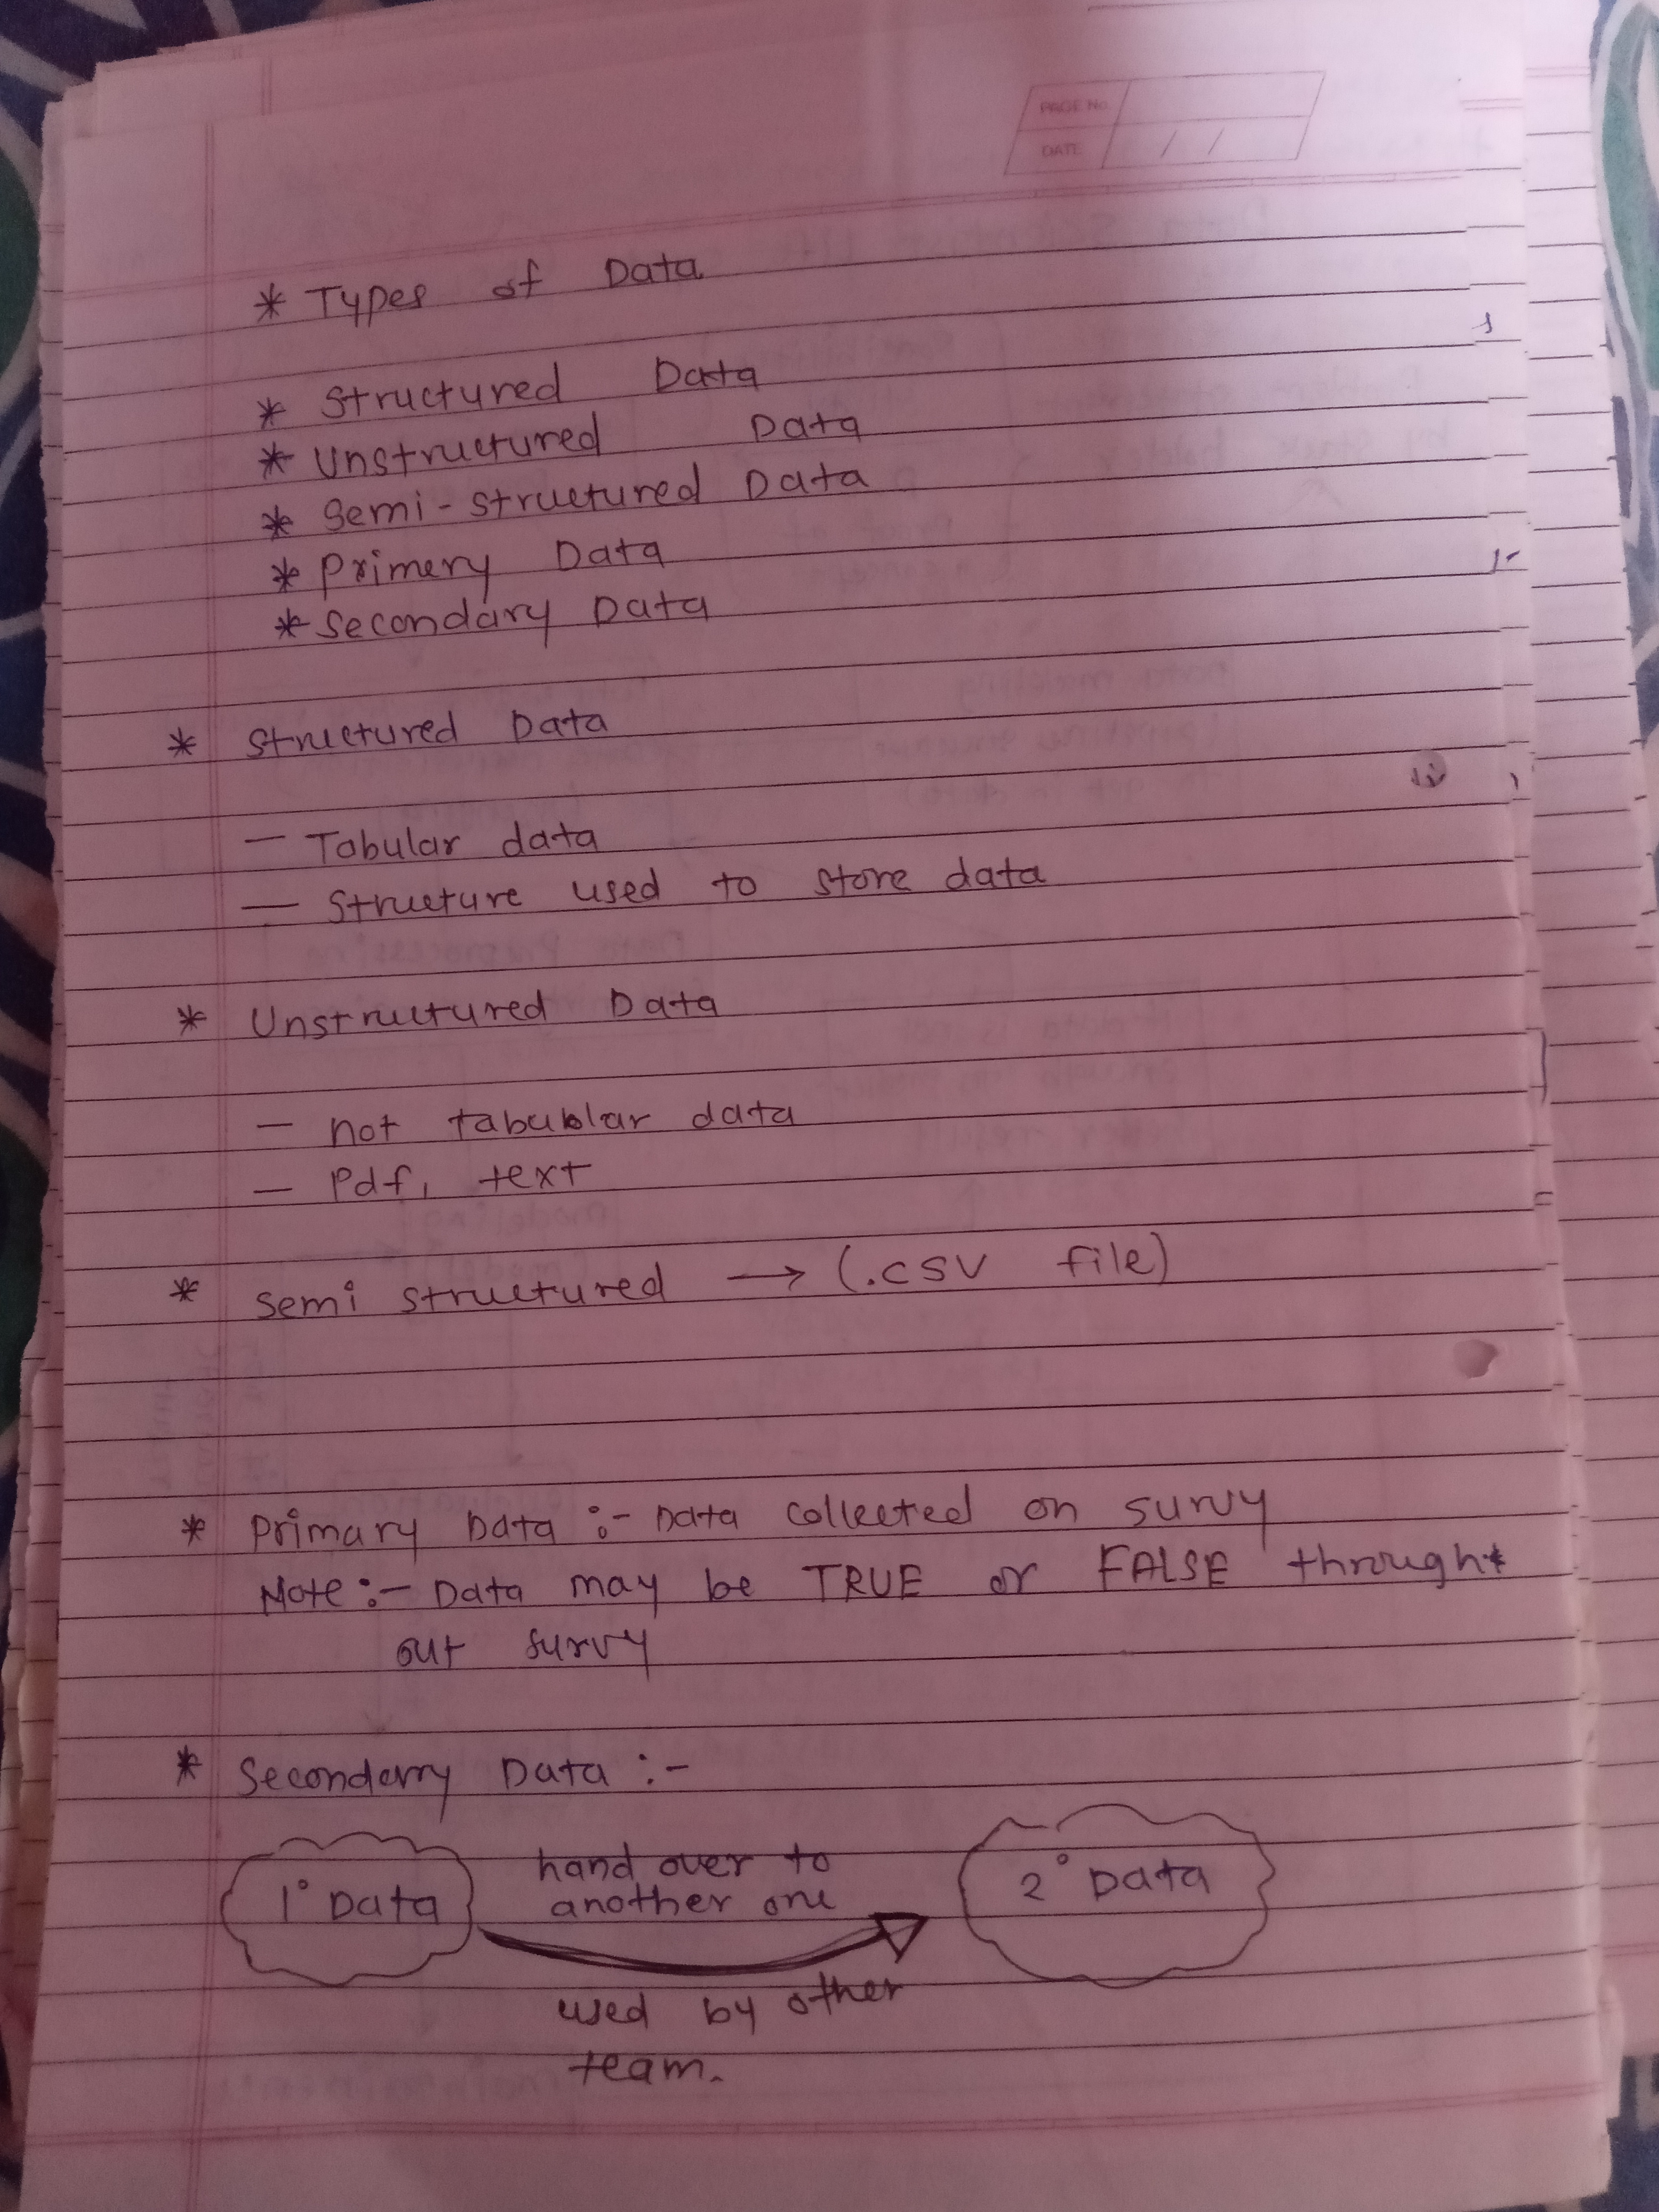 PAGE No.
DATE / /
* Types of Data
* Structured Data
* Unstructured Data
* Semi-structured Data
* Primery Data
* Secondary Data
* Structured Data
— Tabular data
— Structure used to store data
* Unstructured Data
— not tabublar data
— Pdf, text
* semi structured → (.csv file)
* Primary Data :- Data collected on survy
Note :- Data may be TRUE or FALSE through
out survy
* Secondery Data :-
1° Data
hand over to
another one
2° Data
used by other
team.